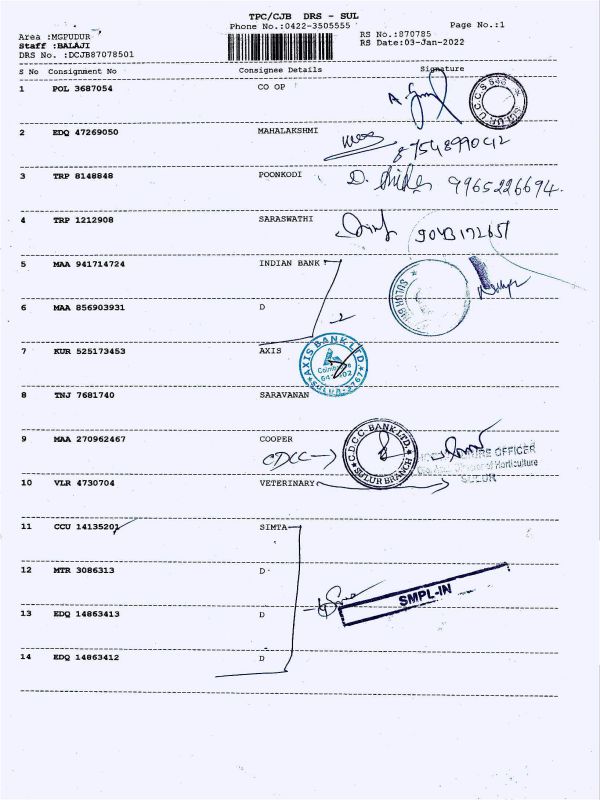 TPC/CJB DRS - SUL
Phone No.:0422-3505555 Page No.:1
Area :MGPUDUR RS No.:870785
Staff :BALAJI RS Date:03-Jan-2022
DRS No. :DCJB87078501
S No Consignment No Consignee Details Signature
1 POL 3687054 CO OP
SULUR U.C.C.S
2 EDQ 47269050 MAHALAKSHMI
8754899042
3 TRP 8148848 POONKODI
9965226694.
4 TRP 1212908 SARASWATHI
9043172651
5 MAA 941714724 INDIAN BANK
SULUR
6 MAA 856903931 D
2
7 KUR 525173453 AXIS
AXIS BANK LTD
SULUR-2767
8 TNJ 7681740 SARAVANAN
9 MAA 270962467 COOPER
CDCC
C.D.C.C. BANK LTD.
SULUR BRANCH
OFFICER
of Horticulture
SULUR
10 VLR 4730704 VETERINARY
11 CCU 14135201 SIMTA
12 MTR 3086313 D
SMPL-IN
13 EDQ 14863413 D
14 EDQ 14863412 D